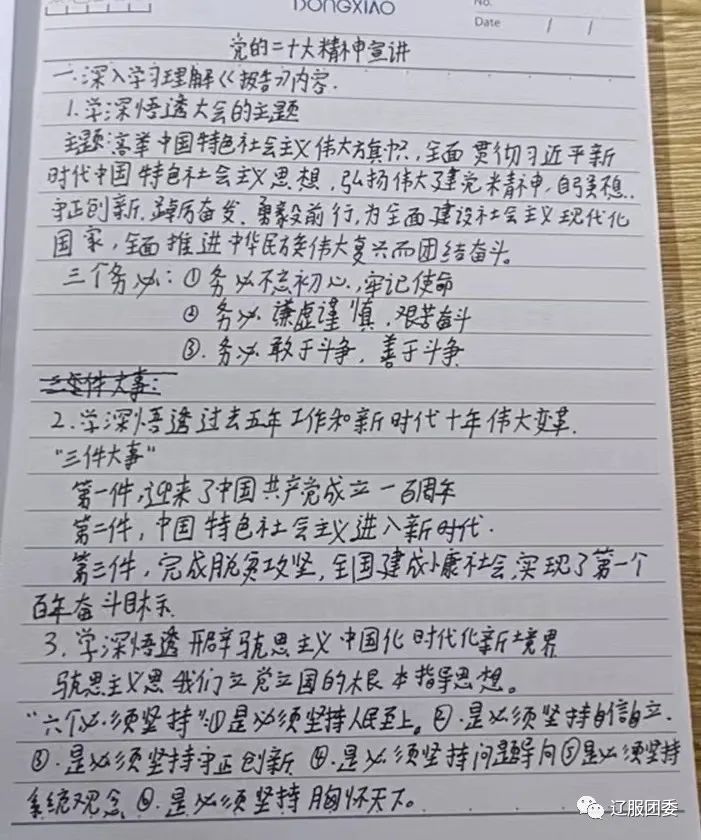 DONGXIAO
No.
Date / /
党的二十大精神宣讲
一.深入学习理解《报告》内容.
1.学深悟透大会的主题
主题:高举中国特色社会主义伟大旗帜,全面贯彻习近平新
时代中国特色社会主义思想,弘扬伟大建党精神,自强不息.
守正创新,踔厉奋发、勇毅前行,为全面建设社会主义现代化
国家,全面推进中华民族伟大复兴而团结奋斗。
三个务必:①务必不忘初心,牢记使命
②务必谦虚谨慎,艰苦奋斗
③.务必敢于斗争,善于斗争
三件大事:
2.学深悟透过去五年工作和新时代十年伟大变革.
"三件大事"
第一件,迎来了中国共产党成立一百周年
第二件,中国特色社会主义进入新时代.
第三件,完成脱贫攻坚,全国建成小康社会,实现了第一个
百年奋斗目标
3.学深悟透开辟马克思主义中国化时代化新境界
马克思主义思我们立党立国的根本指导思想。
"六个必须坚持":①是必须坚持人民至上。②.是必须坚持自信自立.
③.是必须坚持守正创新 ④.是必须坚持问题导向⑤是必须坚持
系统观念 ⑥.是必须坚持胸怀天下。
辽服团委